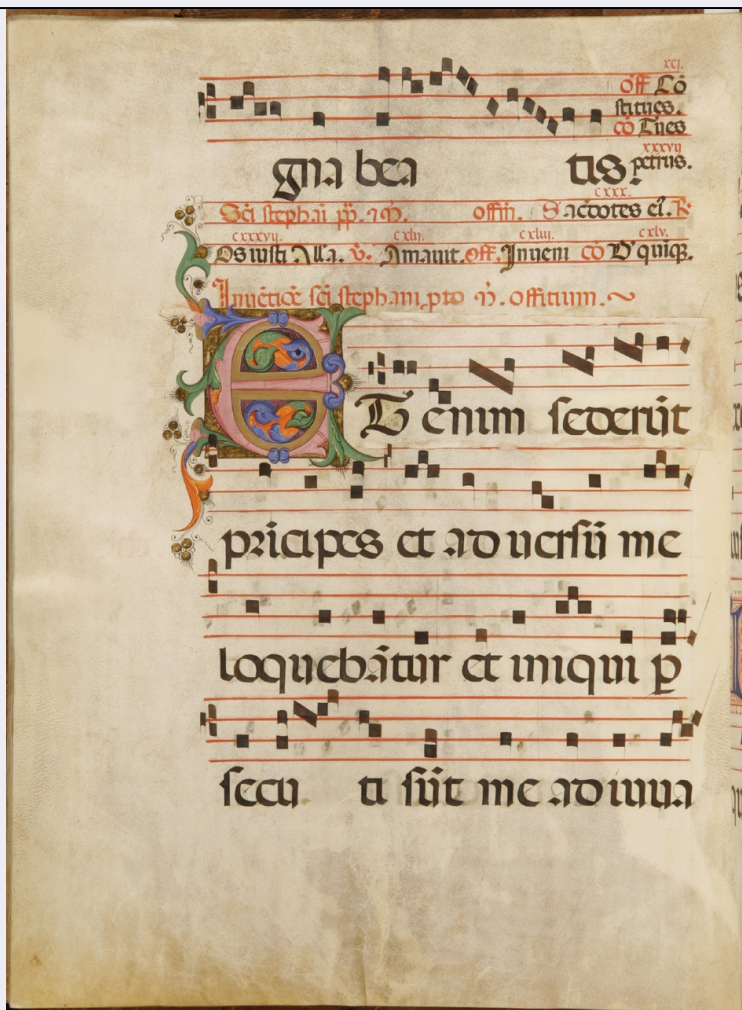 xcj.
off̃ Cō
stitues.
cō Tues
xxxvij
gna bea tis. petrus.
cxxx.
Sc̄i stephāi pp̄. ⁊ m̄. offm̄. Sacdotes ei. ℟
cxxxvij. cxlij. cxliij. cxlv.
Os iusti Alla. v̄. Amauit. off̄. Inueni cō D quiq̄.
Inuētiōe sc̄i stephani, pto m̄. offitium.
Et enim sederūt
prīcipes et aduersū me
loquebātur et iniqui ꝑ
secu ti sūt me adiuua